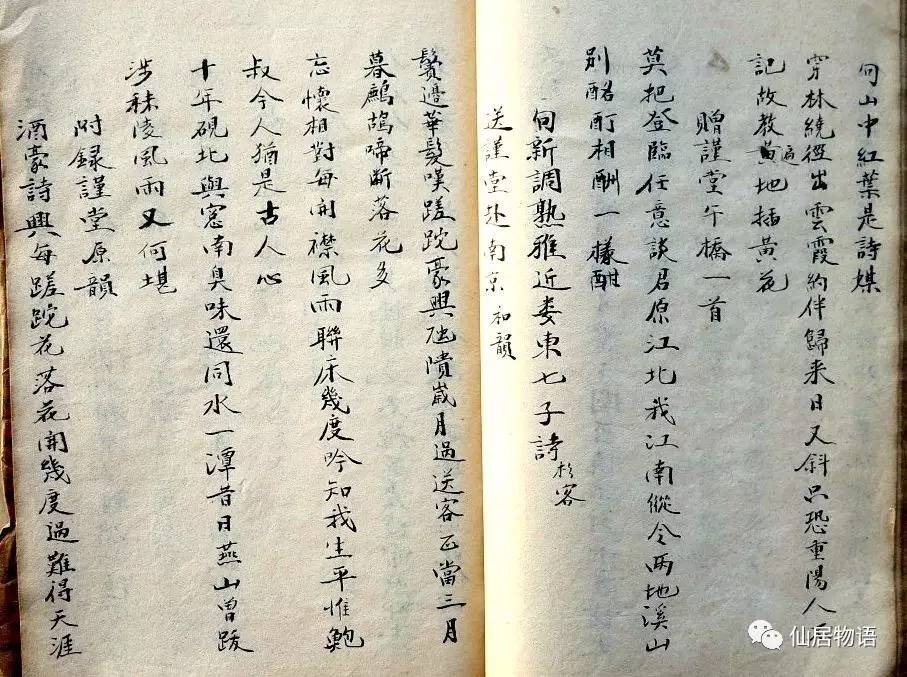 向山中紅葉是詩媒
穿林繞徑出雲霞約伴歸来日又斜只恐重陽人
記故教遍地插黄花
贈謹堂午橋一首
莫把登臨任意談君原江北我江南縱令兩地溪山
别酩酊相酬一樣酣
句新調熟雅近婁東七子詩 杉客
送謹堂赴南京 和韻
鬢邊華髮嘆蹉跎豪興隤歲月過送客正當三月
暮鷓鴣啼斷落花多
忘懷相對每開襟風雨聯床幾度吟知我生平惟鮑
叔今人猶是古人心
十年硯北與窓南臭味還同水一潭昔日燕山曾跋
涉秣陵風雨又何堪
附録謹堂原韻
酒豪詩興每蹉跎花落花開幾度過難得天涯
仙居物语